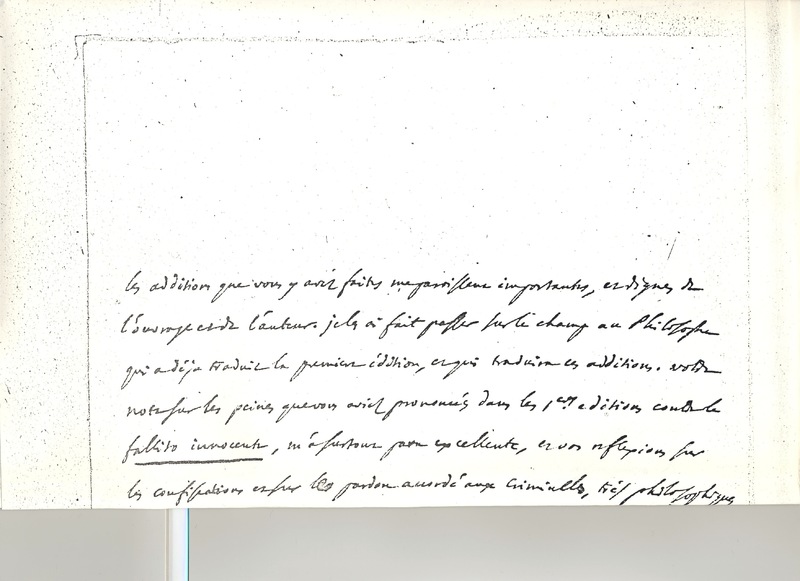 les additions que vous y avez faites me paroissent importantes, et dignes de
l'ouvrage et de l'auteur. je les ai fait passer sur le champ au Philosophe
qui a déja traduit la premiere édition, et qui traduira ces additions. votre
note sur les peines que vous aviez prononcées dans les 1eres editions contre le
fallito innocente, m'a surtout paru excellente, et vos reflexions sur
les confiscations et sur le pardon accordé aux criminels, très philosophiques